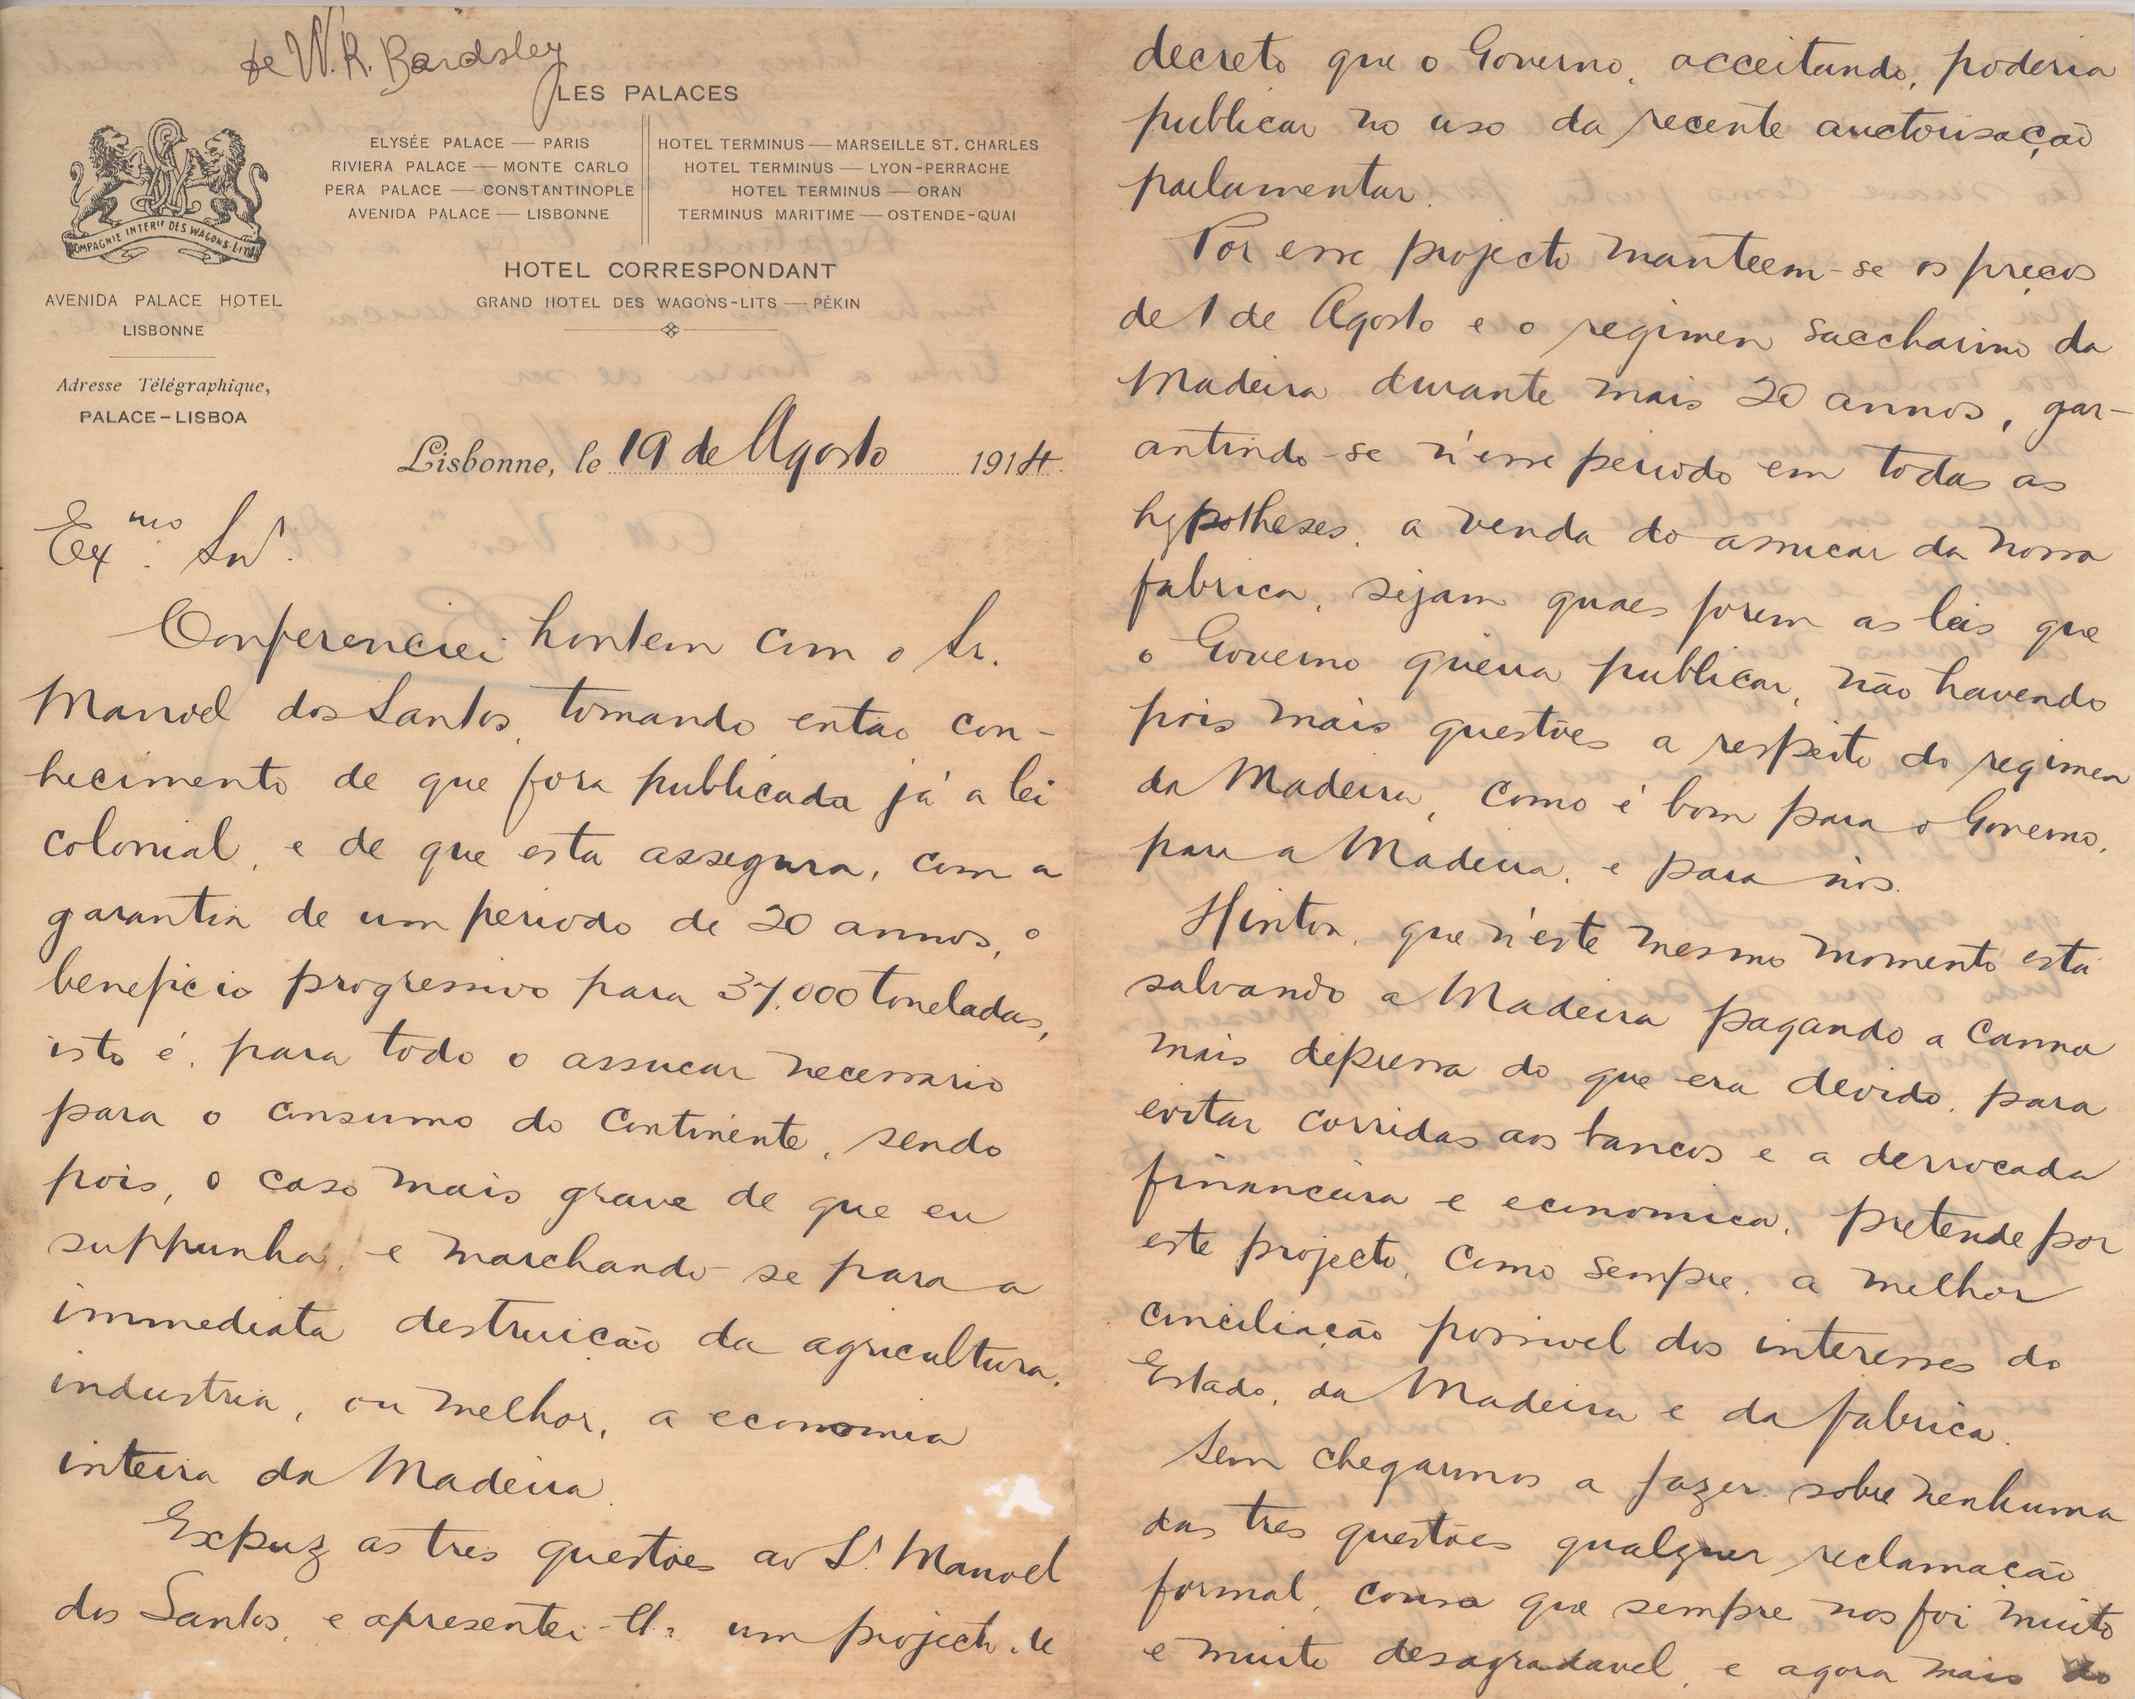 de W. R. Bardsley
LES PALACES
ELYSÉE PALACE — PARIS
RIVIERA PALACE — MONTE CARLO
PERA PALACE — CONSTANTINOPLE
AVENIDA PALACE — LISBONNE
HOTEL TERMINUS — MARSEILLE ST. CHARLES
HOTEL TERMINUS — LYON-PERRACHE
HOTEL TERMINUS — ORAN
TERMINUS MARITIME — OSTENDE-QUAI
HOTEL CORRESPONDANT
GRAND HOTEL DES WAGONS-LITS — PÉKIN
COMPAGNIE INTERle DES WAGONS-LITS
AVENIDA PALACE HOTEL
LISBONNE
Adresse Télégraphique,
PALACE-LISBOA
Lisbonne, le 19 de Agosto 1914.
Exmo. Snr.
Conferenciei hontem com o Sr.
Manoel dos Santos, tomando então con-
hecimento de que fora publicada já a lei
colonial, e de que esta assegura, com a
garantia de um periodo de 20 annos, o
beneficio progressivo para 37.000 toneladas,
isto é, para todo o assucar necessario
para o consumo do Continente, sendo
pois, o caso mais grave de que eu
suppunha, e marchando-se para a
immediata destruição da agricultura,
industria, ou melhor, a economia
inteira da Madeira.
Expuz as tres questões ao Sr. Manoel
dos Santos, e apresentei-lhe um projecto de
decreto que o Governo, acceitando, poderia
publicar no uso da recente auctorisação
parlamentar.
Por esse projecto manteem-se os preços
de 1 de Agosto e o regimen saccharino da
Madeira durante mais 20 annos, gar-
antindo-se n'esse periodo em todas as
hypotheses, a venda do assucar da nossa
fabrica, sejam quaes forem as leis que
o Governo queira publicar, não havendo
pois mais questões a respeito do regimen
da Madeira, como é bom para o Governo,
para a Madeira, e para nós.
Hinton, que n'este mesmo momento está
salvando a Madeira pagando a canna
mais depressa do que era devido, para
evitar corridas aos bancos e a derrocada
financeira e economica, pretende por
este projecto, como sempre, a melhor
conciliação possivel dos interesses do
Estado, da Madeira e da fabrica.
Sem chegarmos a fazer sobre nenhuma
das tres questões qualquer reclamação
formal, cousa que sempre nos foi muito
e muito desagradavel, e agora mais do